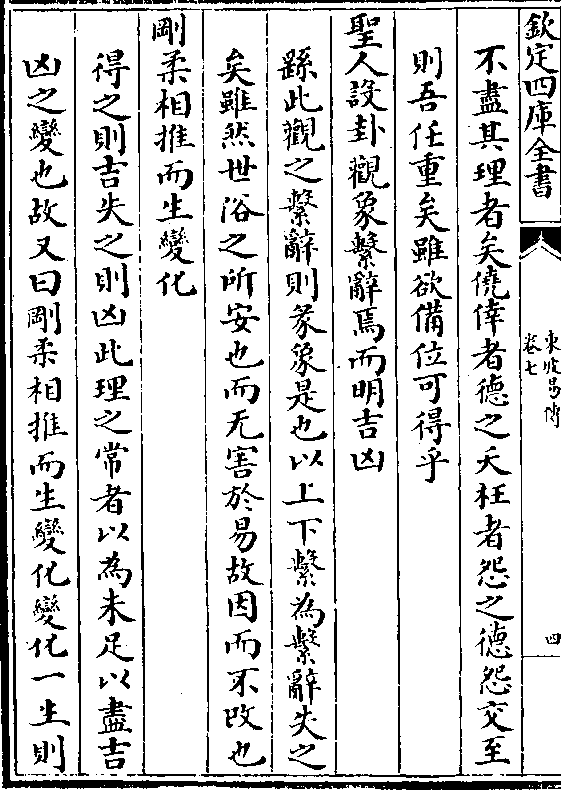 欽定四庫全書
東坡易傳
卷七
四
不盡其理者矣僥倖者德之夭枉者怨之德怨交至
則吾任重矣雖欲備位可得乎
聖人設卦觀象繫辭焉而明吉凶
繇此觀之繫辭則彖象是也以上下繫為繫辭失之
矣雖然世俗之所安也而无害於易故因而不改也
剛柔相推而生變化
得之則吉失之則凶此理之常者以為未足以盡吉
凶之變也故又曰剛柔相推而生變化變化一生則